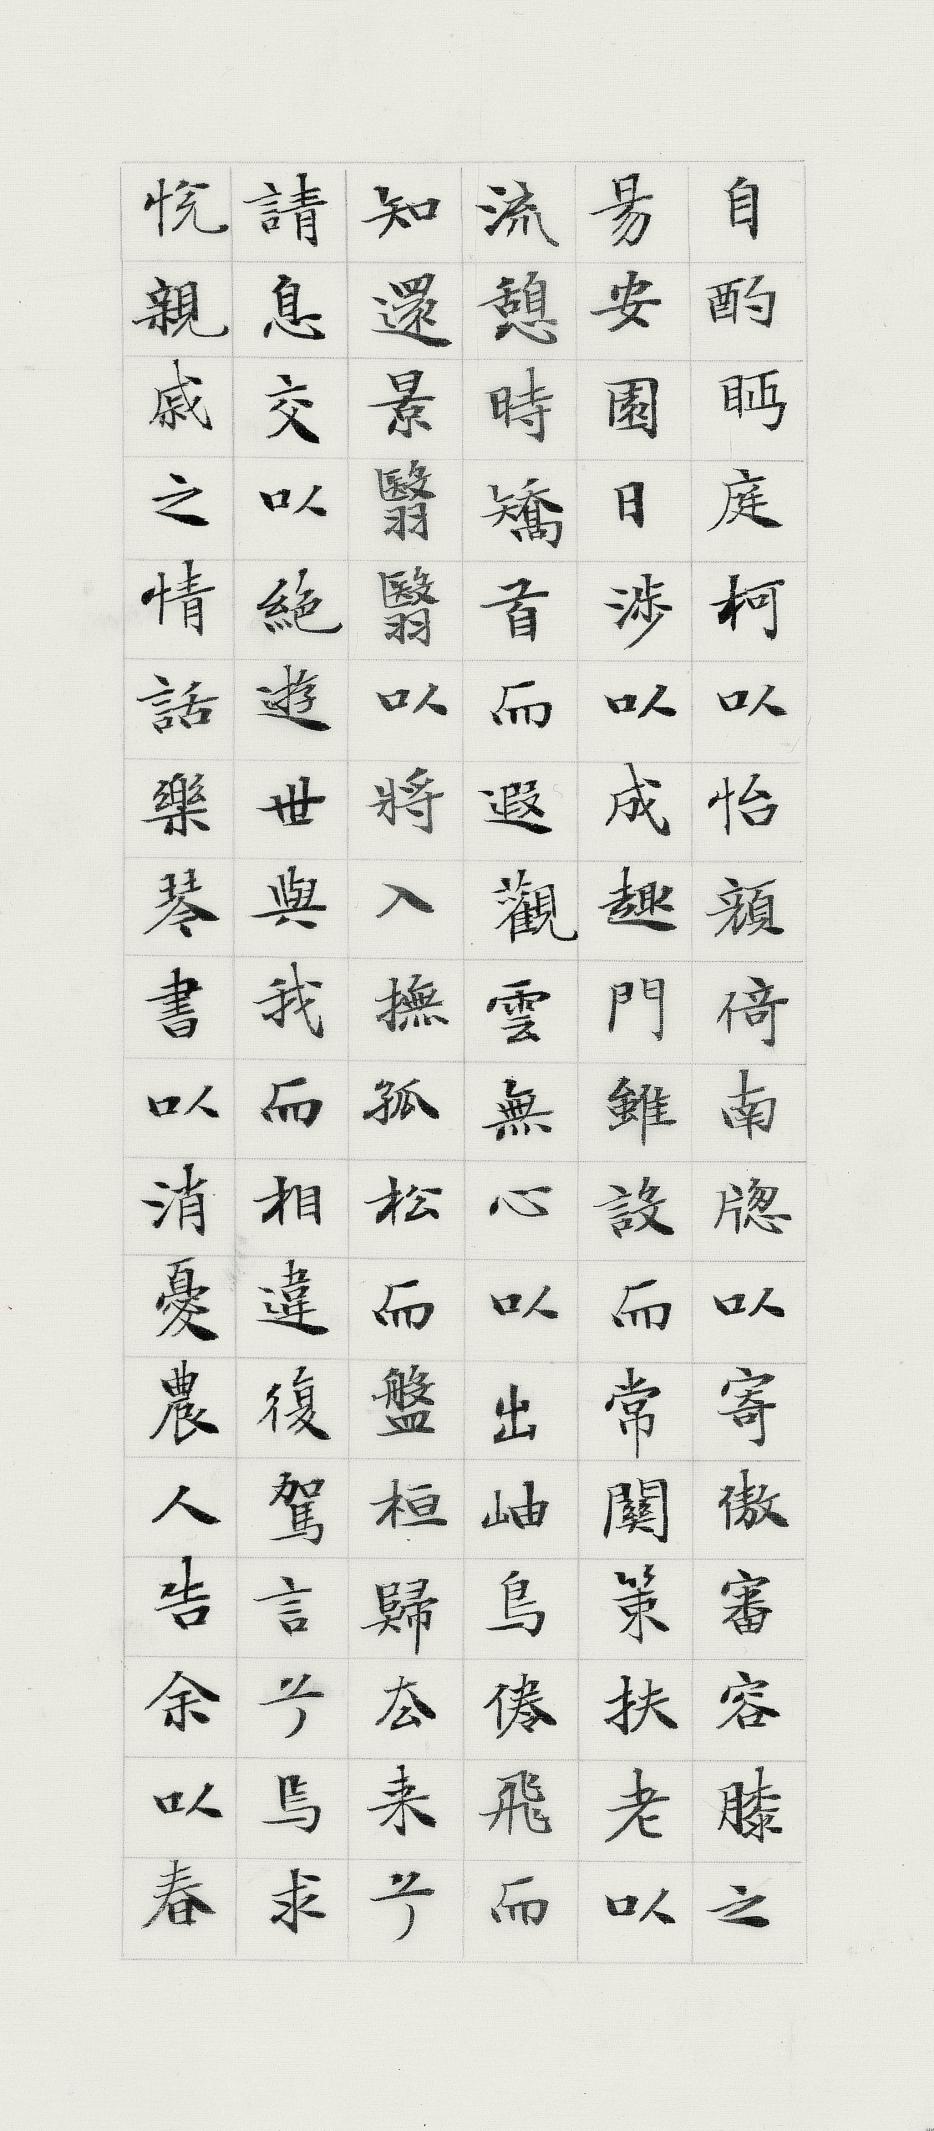 自酌眄庭柯以怡顏倚南牕以寄傲審容膝之
易安園日涉以成趣門雖設而常關策扶老以
流憩時矯首而遐觀雲無心以出岫鳥倦飛而
知還景翳翳以將入撫孤松而盤桓歸去来兮
請息交以絕遊世與我而相違復駕言兮焉求
悅親戚之情話樂琴書以消憂農人告余以春